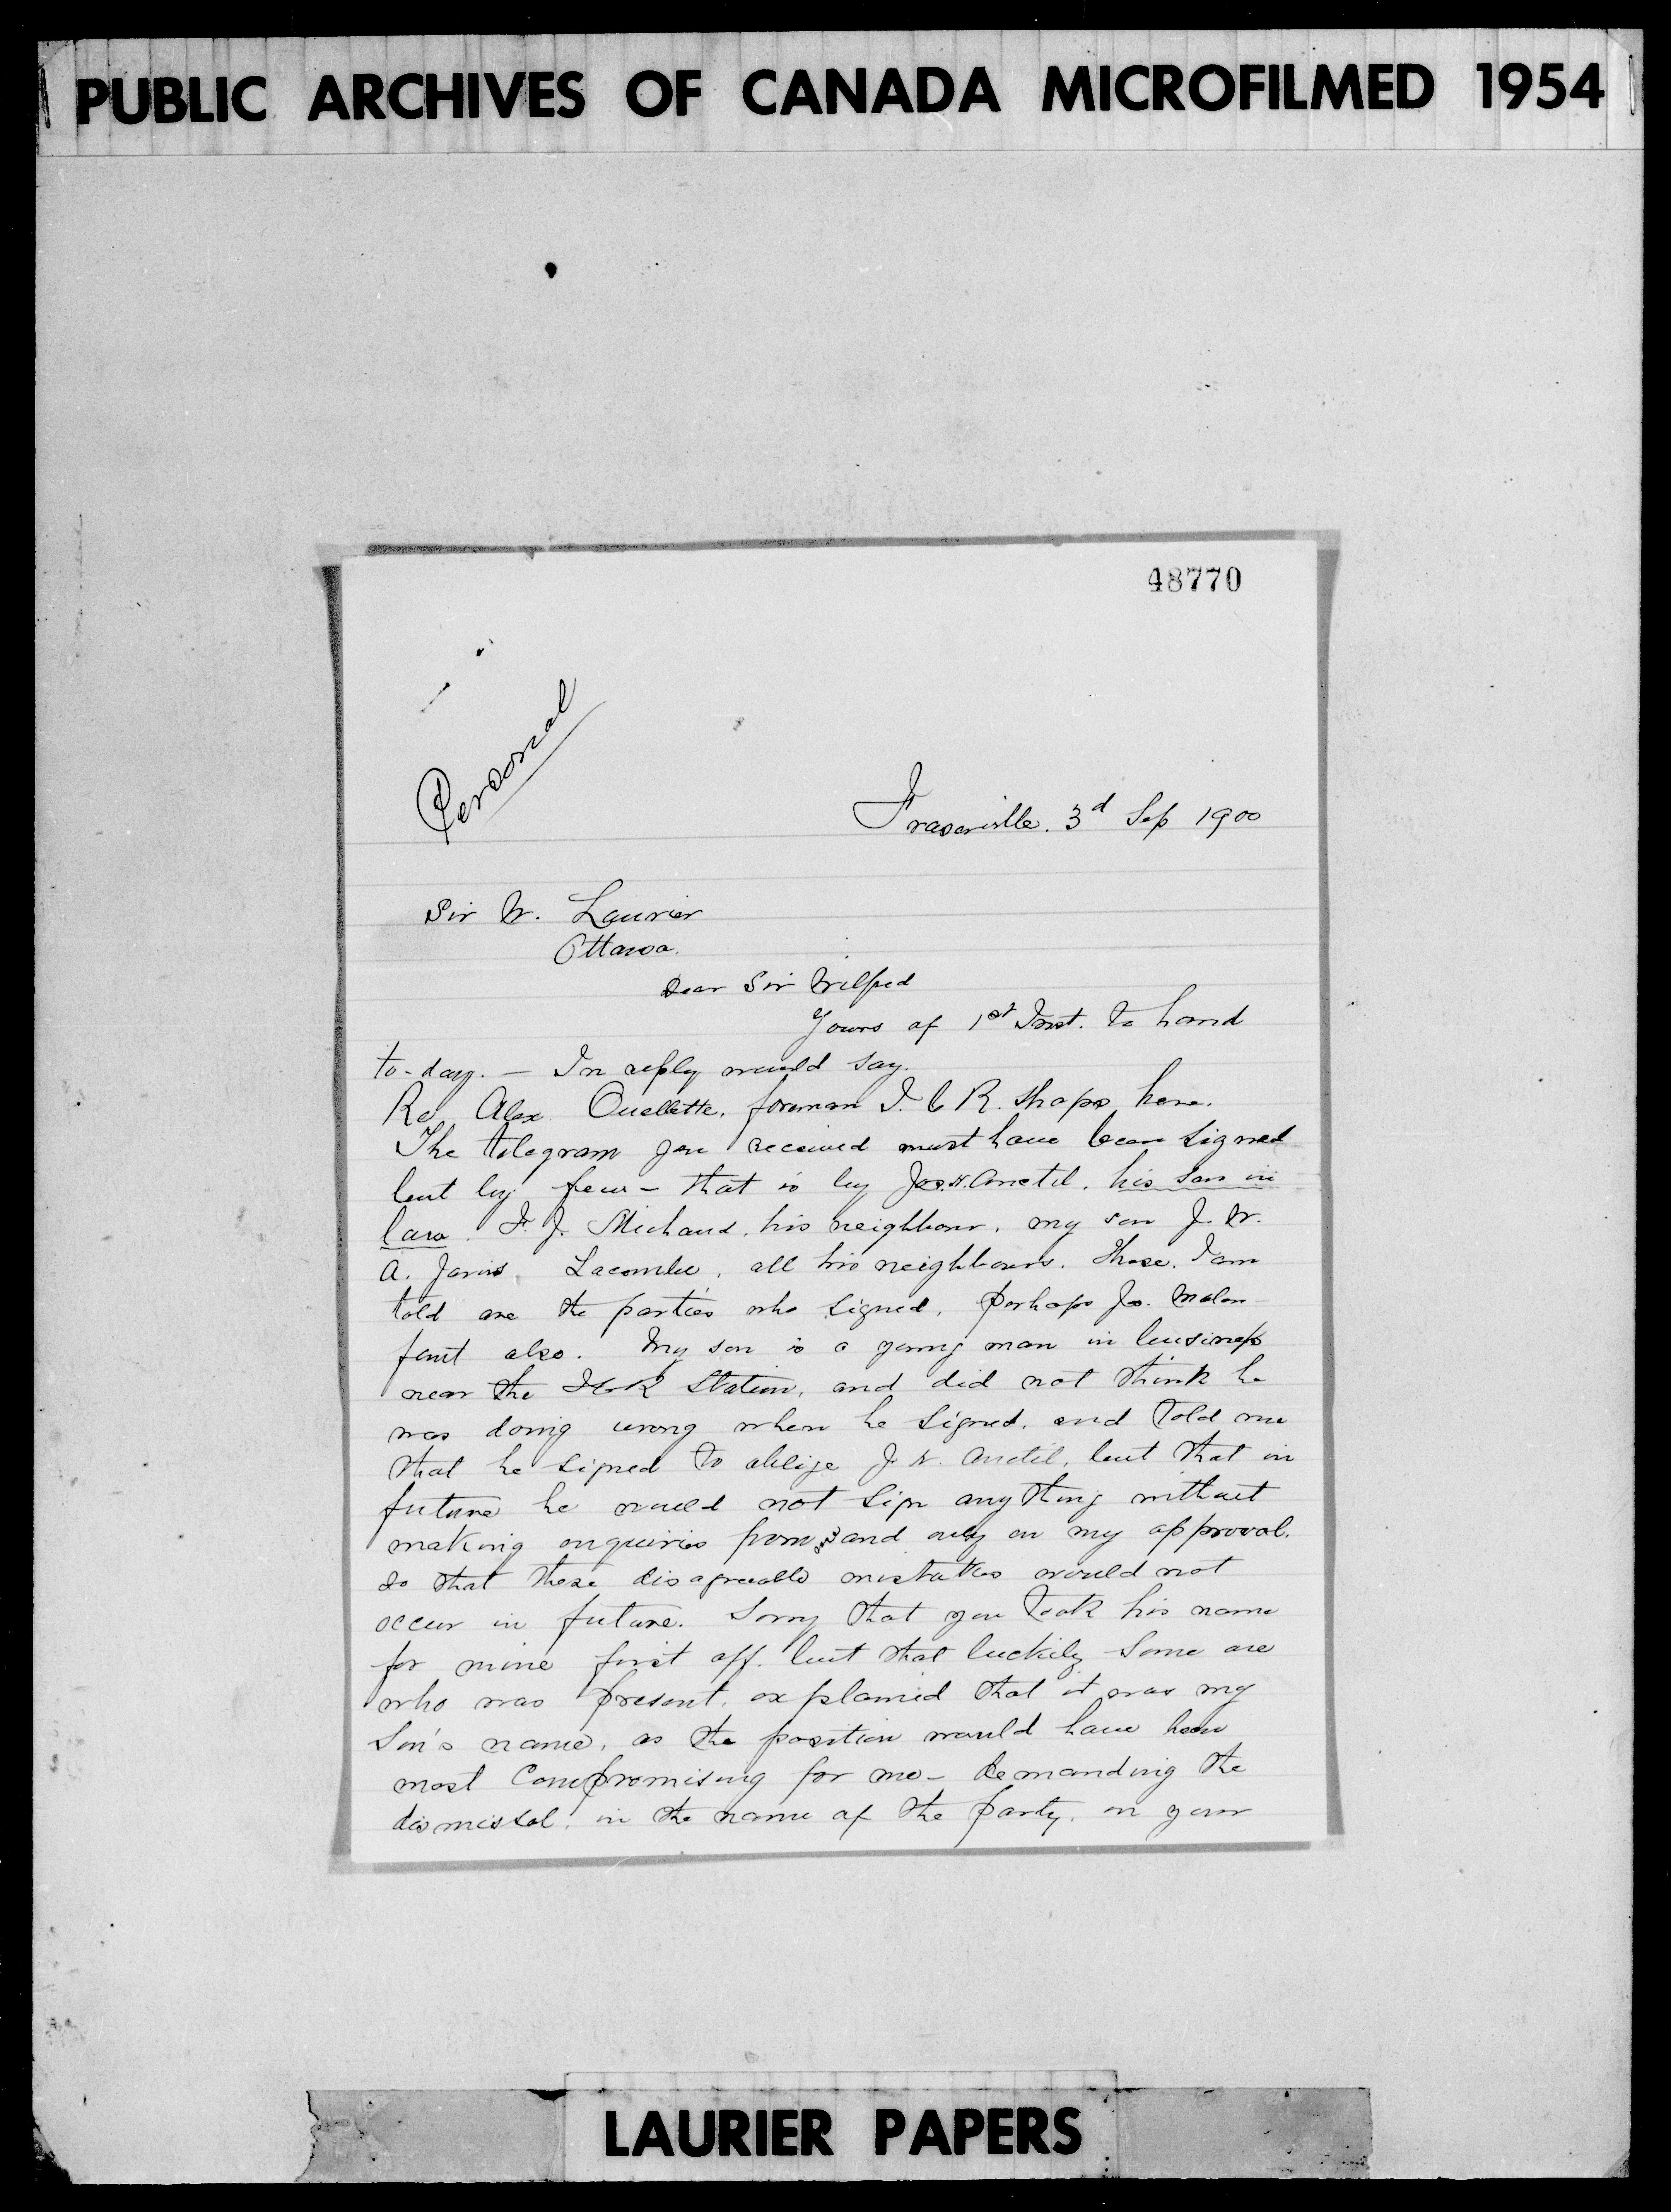 PUBLIC ARCHIVES OF CANADA MICROFILMED 1954
48770
Personal
Fraserville. 3d Sep 1900
Sir W. Laurier
Ottawa.
Dear Sir Wilfred
Yours of 1st Inst. to hand
to-day. — In reply would say.
Re Alex Ouellette, foreman I. C R. Shops here.
The telegram you received must have been signed
but by few - that is by Jos. N. Anctil, his son in
law. F. J. Michaud, his neighbour, my son J. W.
A. Jarvis Lacombe, all his neighbours. These, I am
told are the parties who signed, perhaps Jos. Malen-
fant also. My son is a young man in business
near the I C R Station, and did not think he
was doing wrong when he signed, and told me
that he signed to oblige J. N. Anctil, but that in
future he would not sign any thing without
making enquiries from and only on my approval.
so that these disagreeable mistakes would not
occur in future. Sorry that you took his name
for mine first off. but that luckily some one
who was present, explained that it was my
Son's name, as the position would have been
most compromising for me - demanding the
dismissal, in the name of the party, on your
LAURIER PAPERS